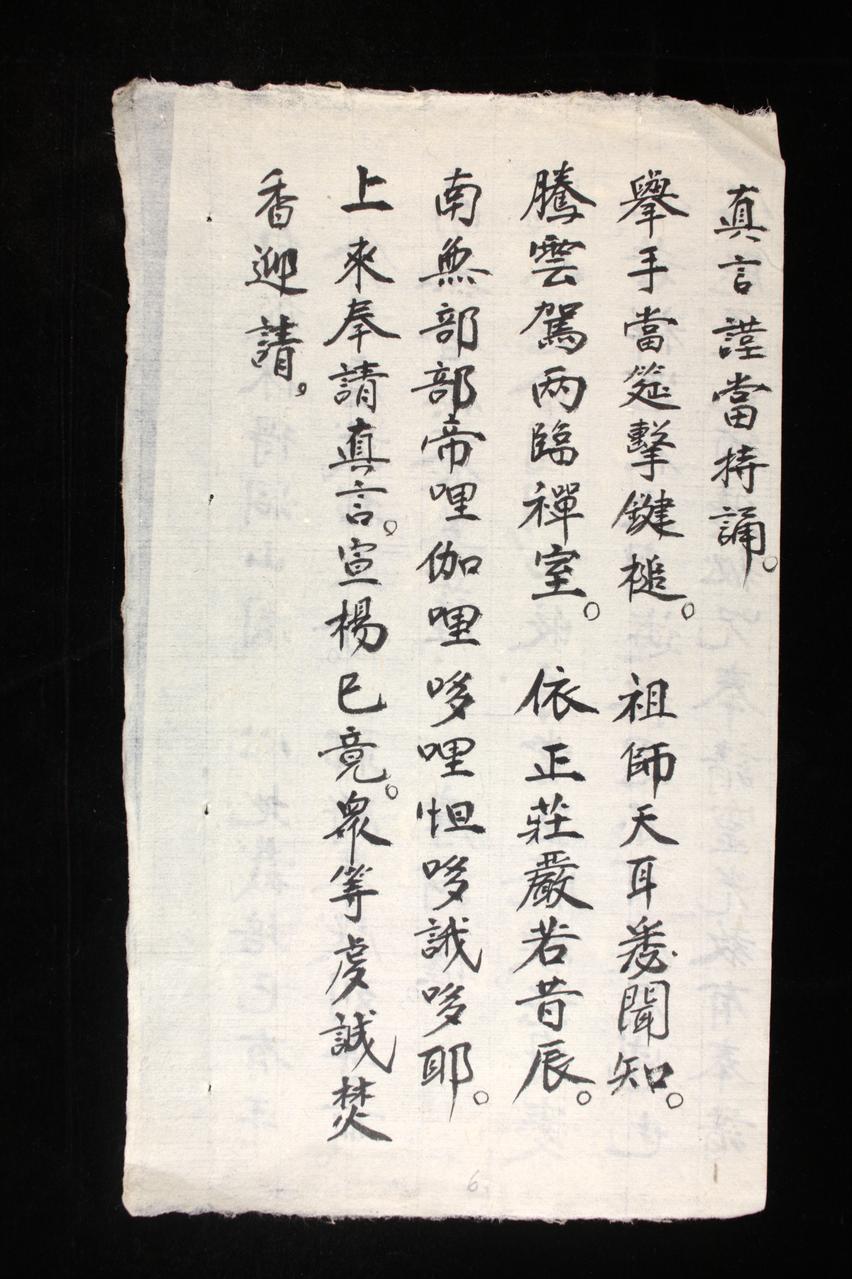 真言謹當持誦。
舉手當筵擊鍵槌。祖師天耳悉聞知。
騰雲駕兩臨禪室。依正莊嚴若昔辰。
南無部部帝哩伽哩哆哩怛哆誐哆耶。
上來奉請真言。宣楊已竟。衆等虔誠焚
香迎請，
6